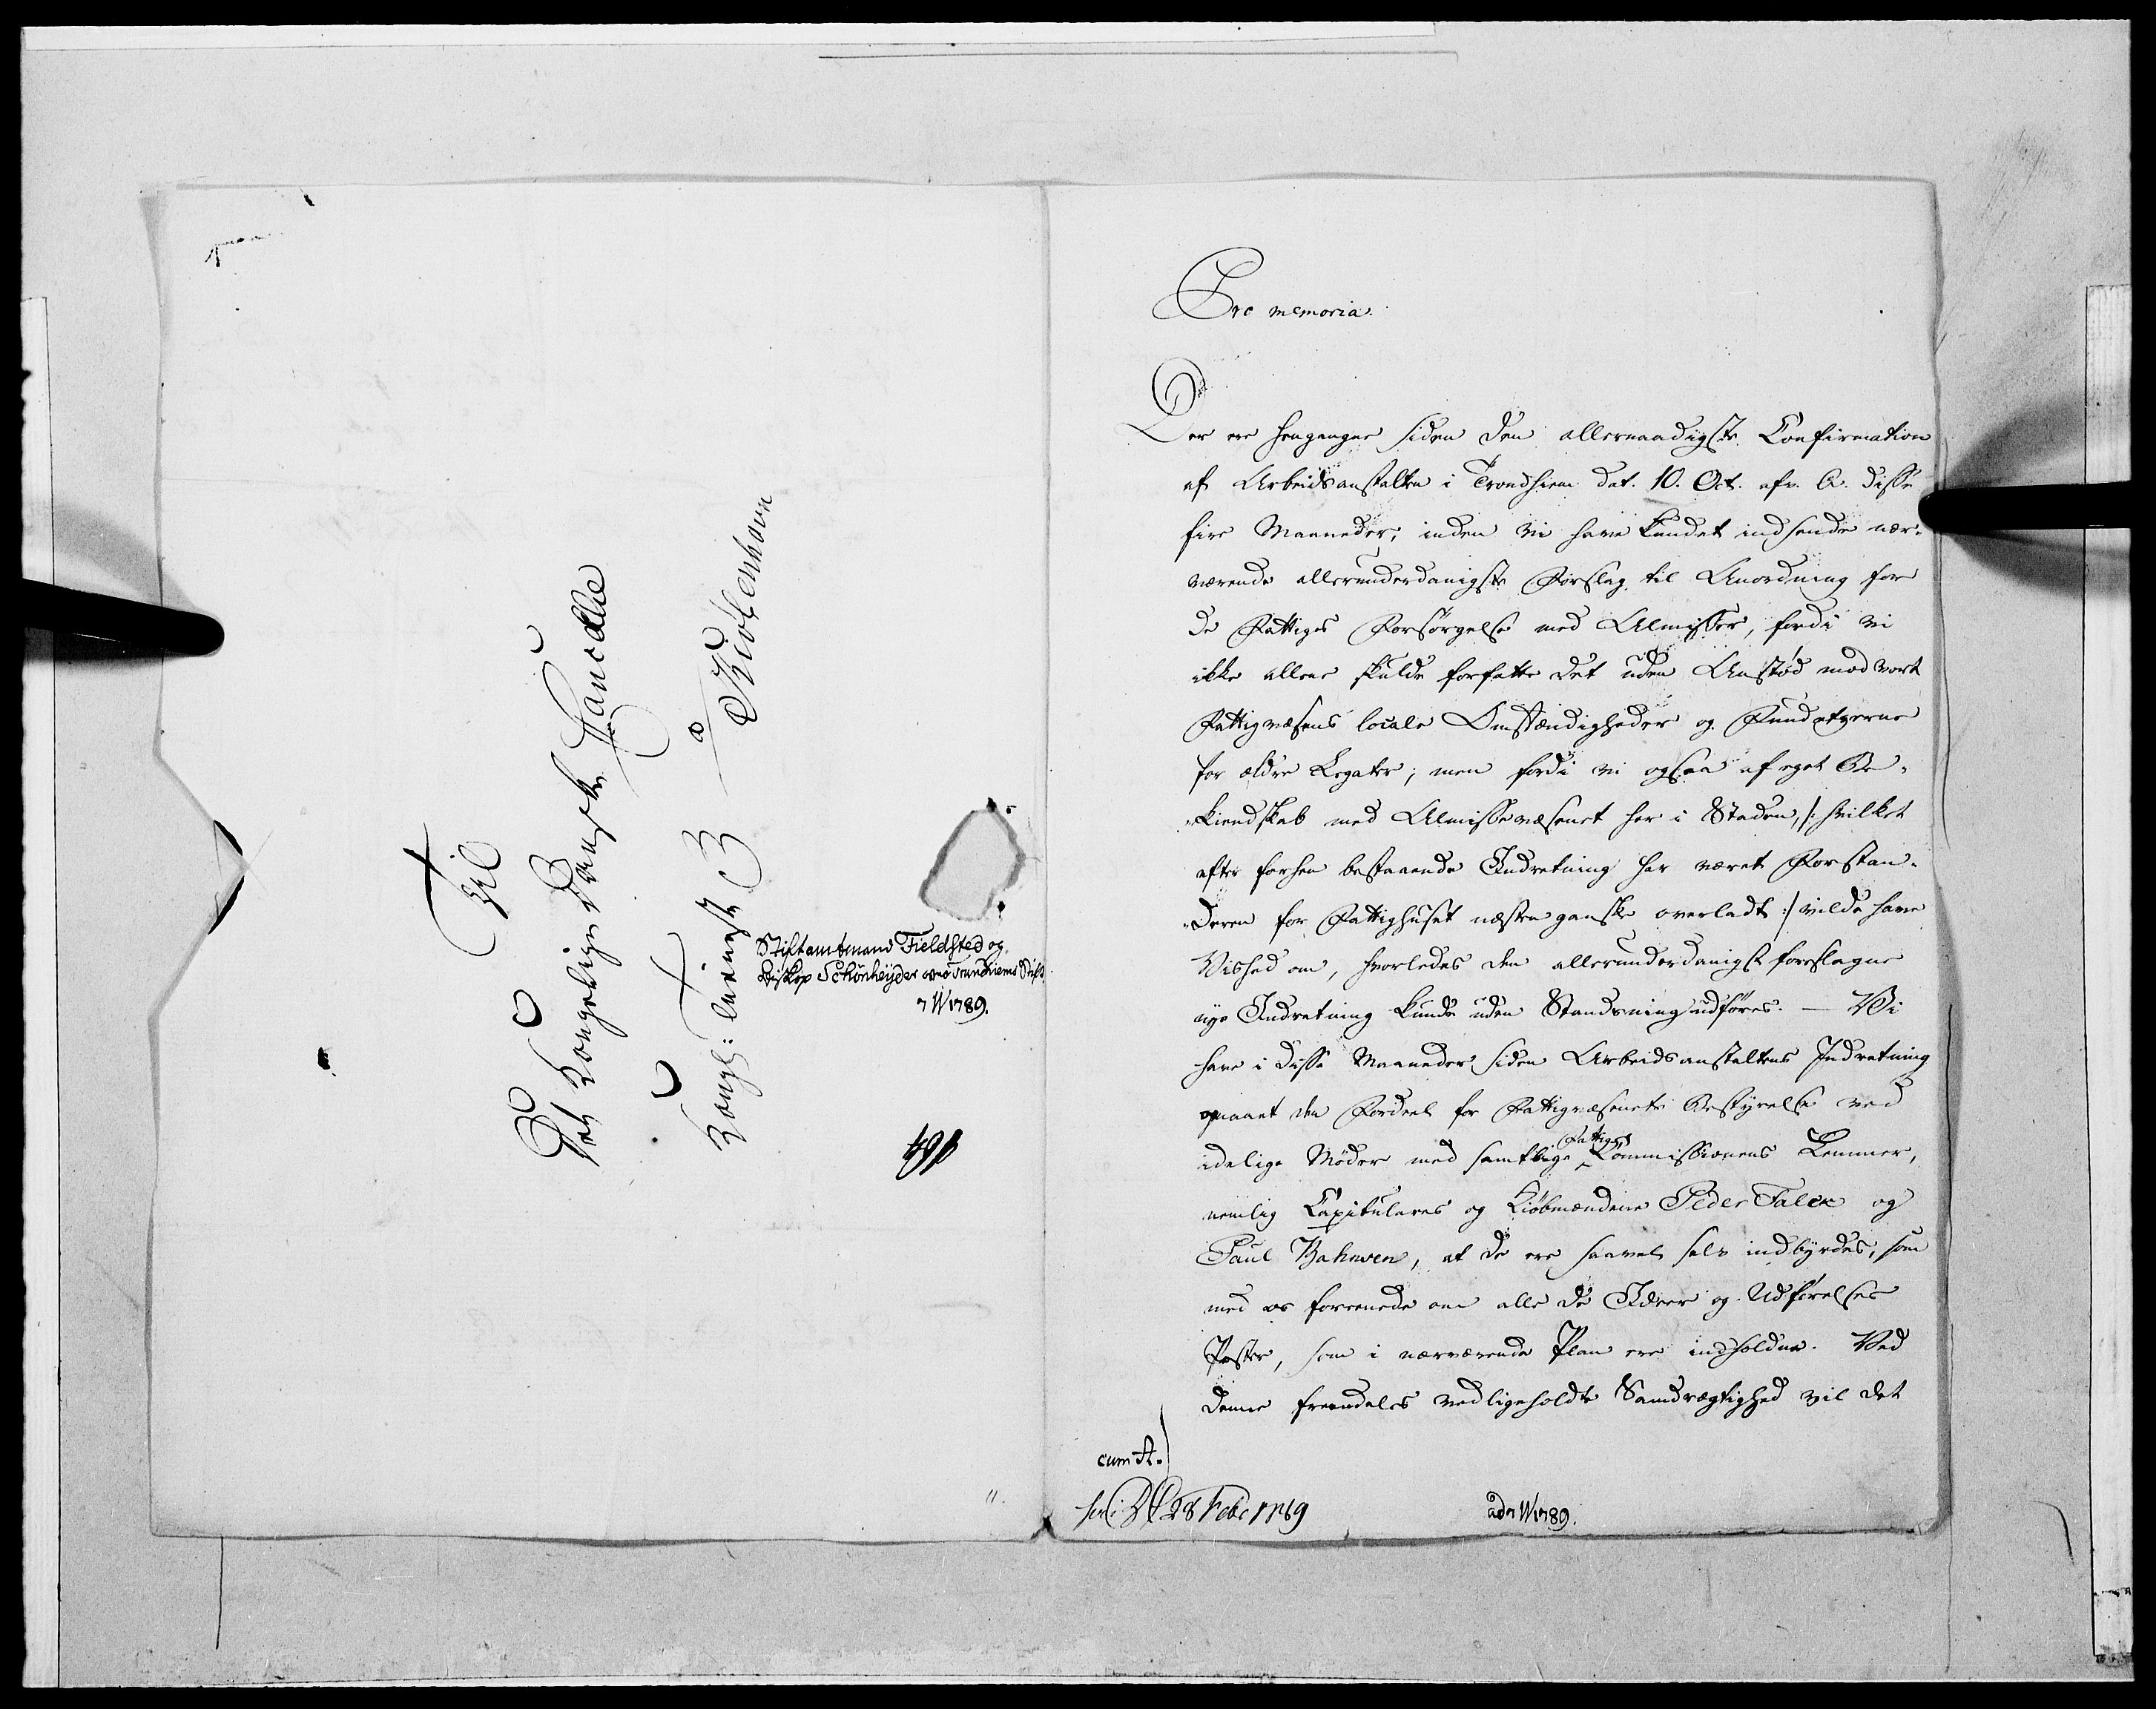 Til
Det Kongelige Danske Cancellie
Kongl: Tieneste
a
Kiøbenhavn
Stiftamtmand Fieldsted og
Biskop Schönheyder over Trundhiems Stift
7 W 1789.
Pro memoria.
Der ere hengangne siden den allernaadigste Confirmation
af Arbeidsanstalten i Trondhiem dat. 10. Oct. afv. A. disse
fire Maaneder, inden vi have kundet indsende nær-
værende allerunderdanigste Forslag til Anordning for
de Fattiges Forsørgelse med Almisser, fordi vi
ikke allene skulde forfatte det uden Anstød mod vort
Fattigvæsens locale Omstændigheder og Fundatzerne
for ældre Legater; men fordi vi ogsaa af eget Be-
kiendskab med Almissevæsenet her i Staden, /: hvilket
efter forhen bestaaende Indretning har været Forstan-
deren for Fattighuset næsten ganske overladt :/ vilde have
Vished om, hvorledes den allerunderdanigst foreslagne
nye Indretning kunde uden Standsning udføres. — Vi
have i disse Maaneder siden Arbeidsanstaltens Indretning
opnaaet den Fordeel for Fattigvæsenets Bestyrelse ved
idelige Møder med samtlige Fattiges Commissionens Lemmer,
nemlig Capitulares og Kiøbmændene Peder Falck og
Paul, at de ere saavel selv indbyrdes, som
med os foreenede om alle de Ideer og Udførelses
Poster, som i nærværende Plan ere indholdne. Ved
denne fremdeles vedligeholdte Samdrægtighed vil det
cum A.
28 Febr 1789
ad 7 W 1789.